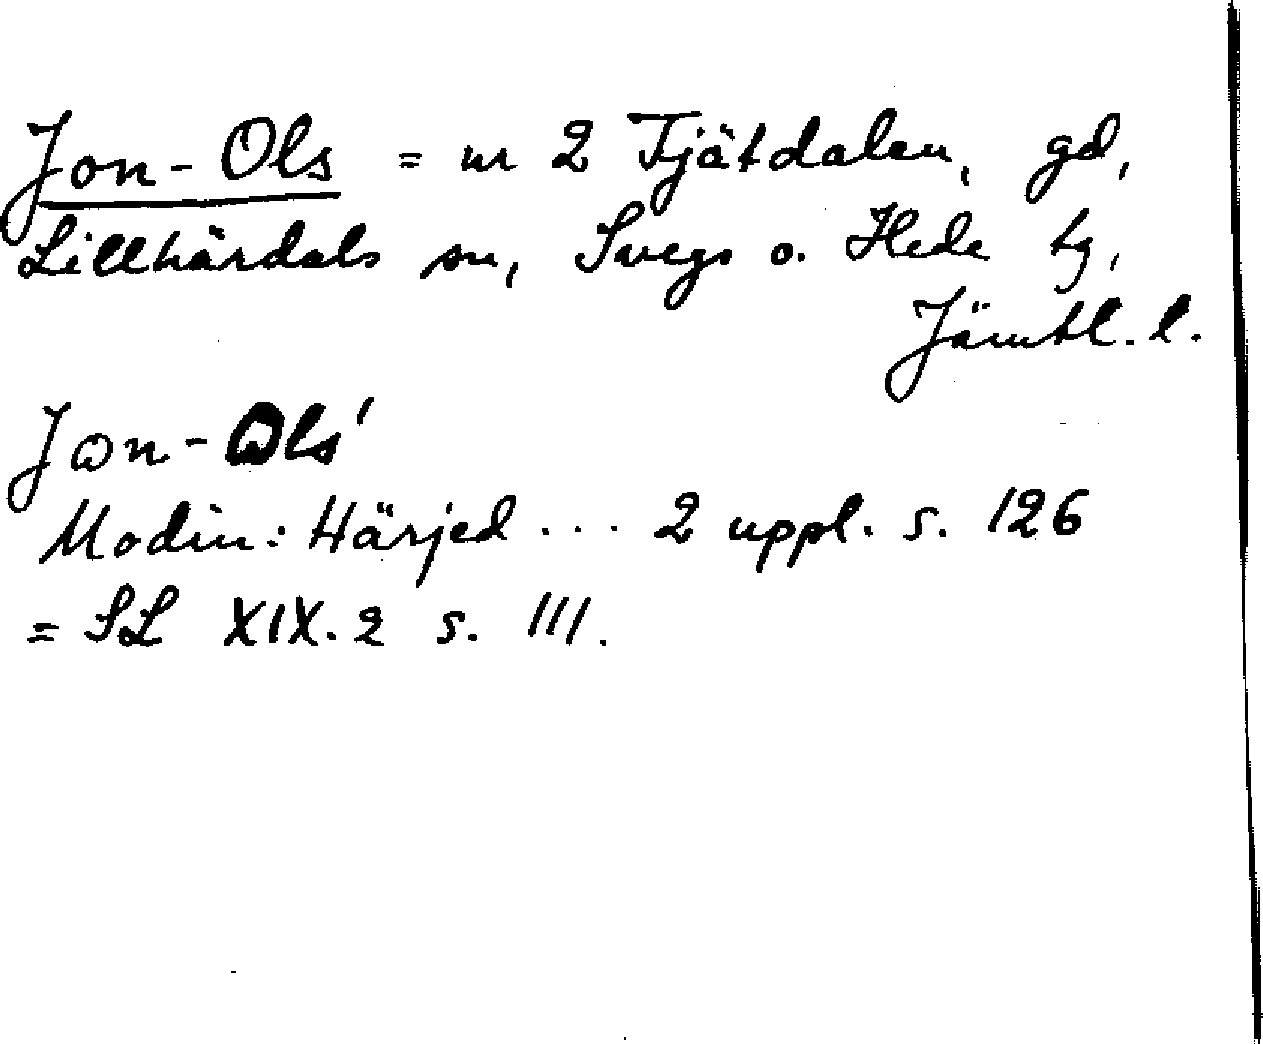 Jon-Ols = nr 2 Tjätdalen, gd,
Lillhärdals sn, Svegs o. Hede tg,
Jämtl. l.
Jon-Ols'
Modin: Härjed... 2 uppl. s. 126
= SL XIX. 2 s. 111.